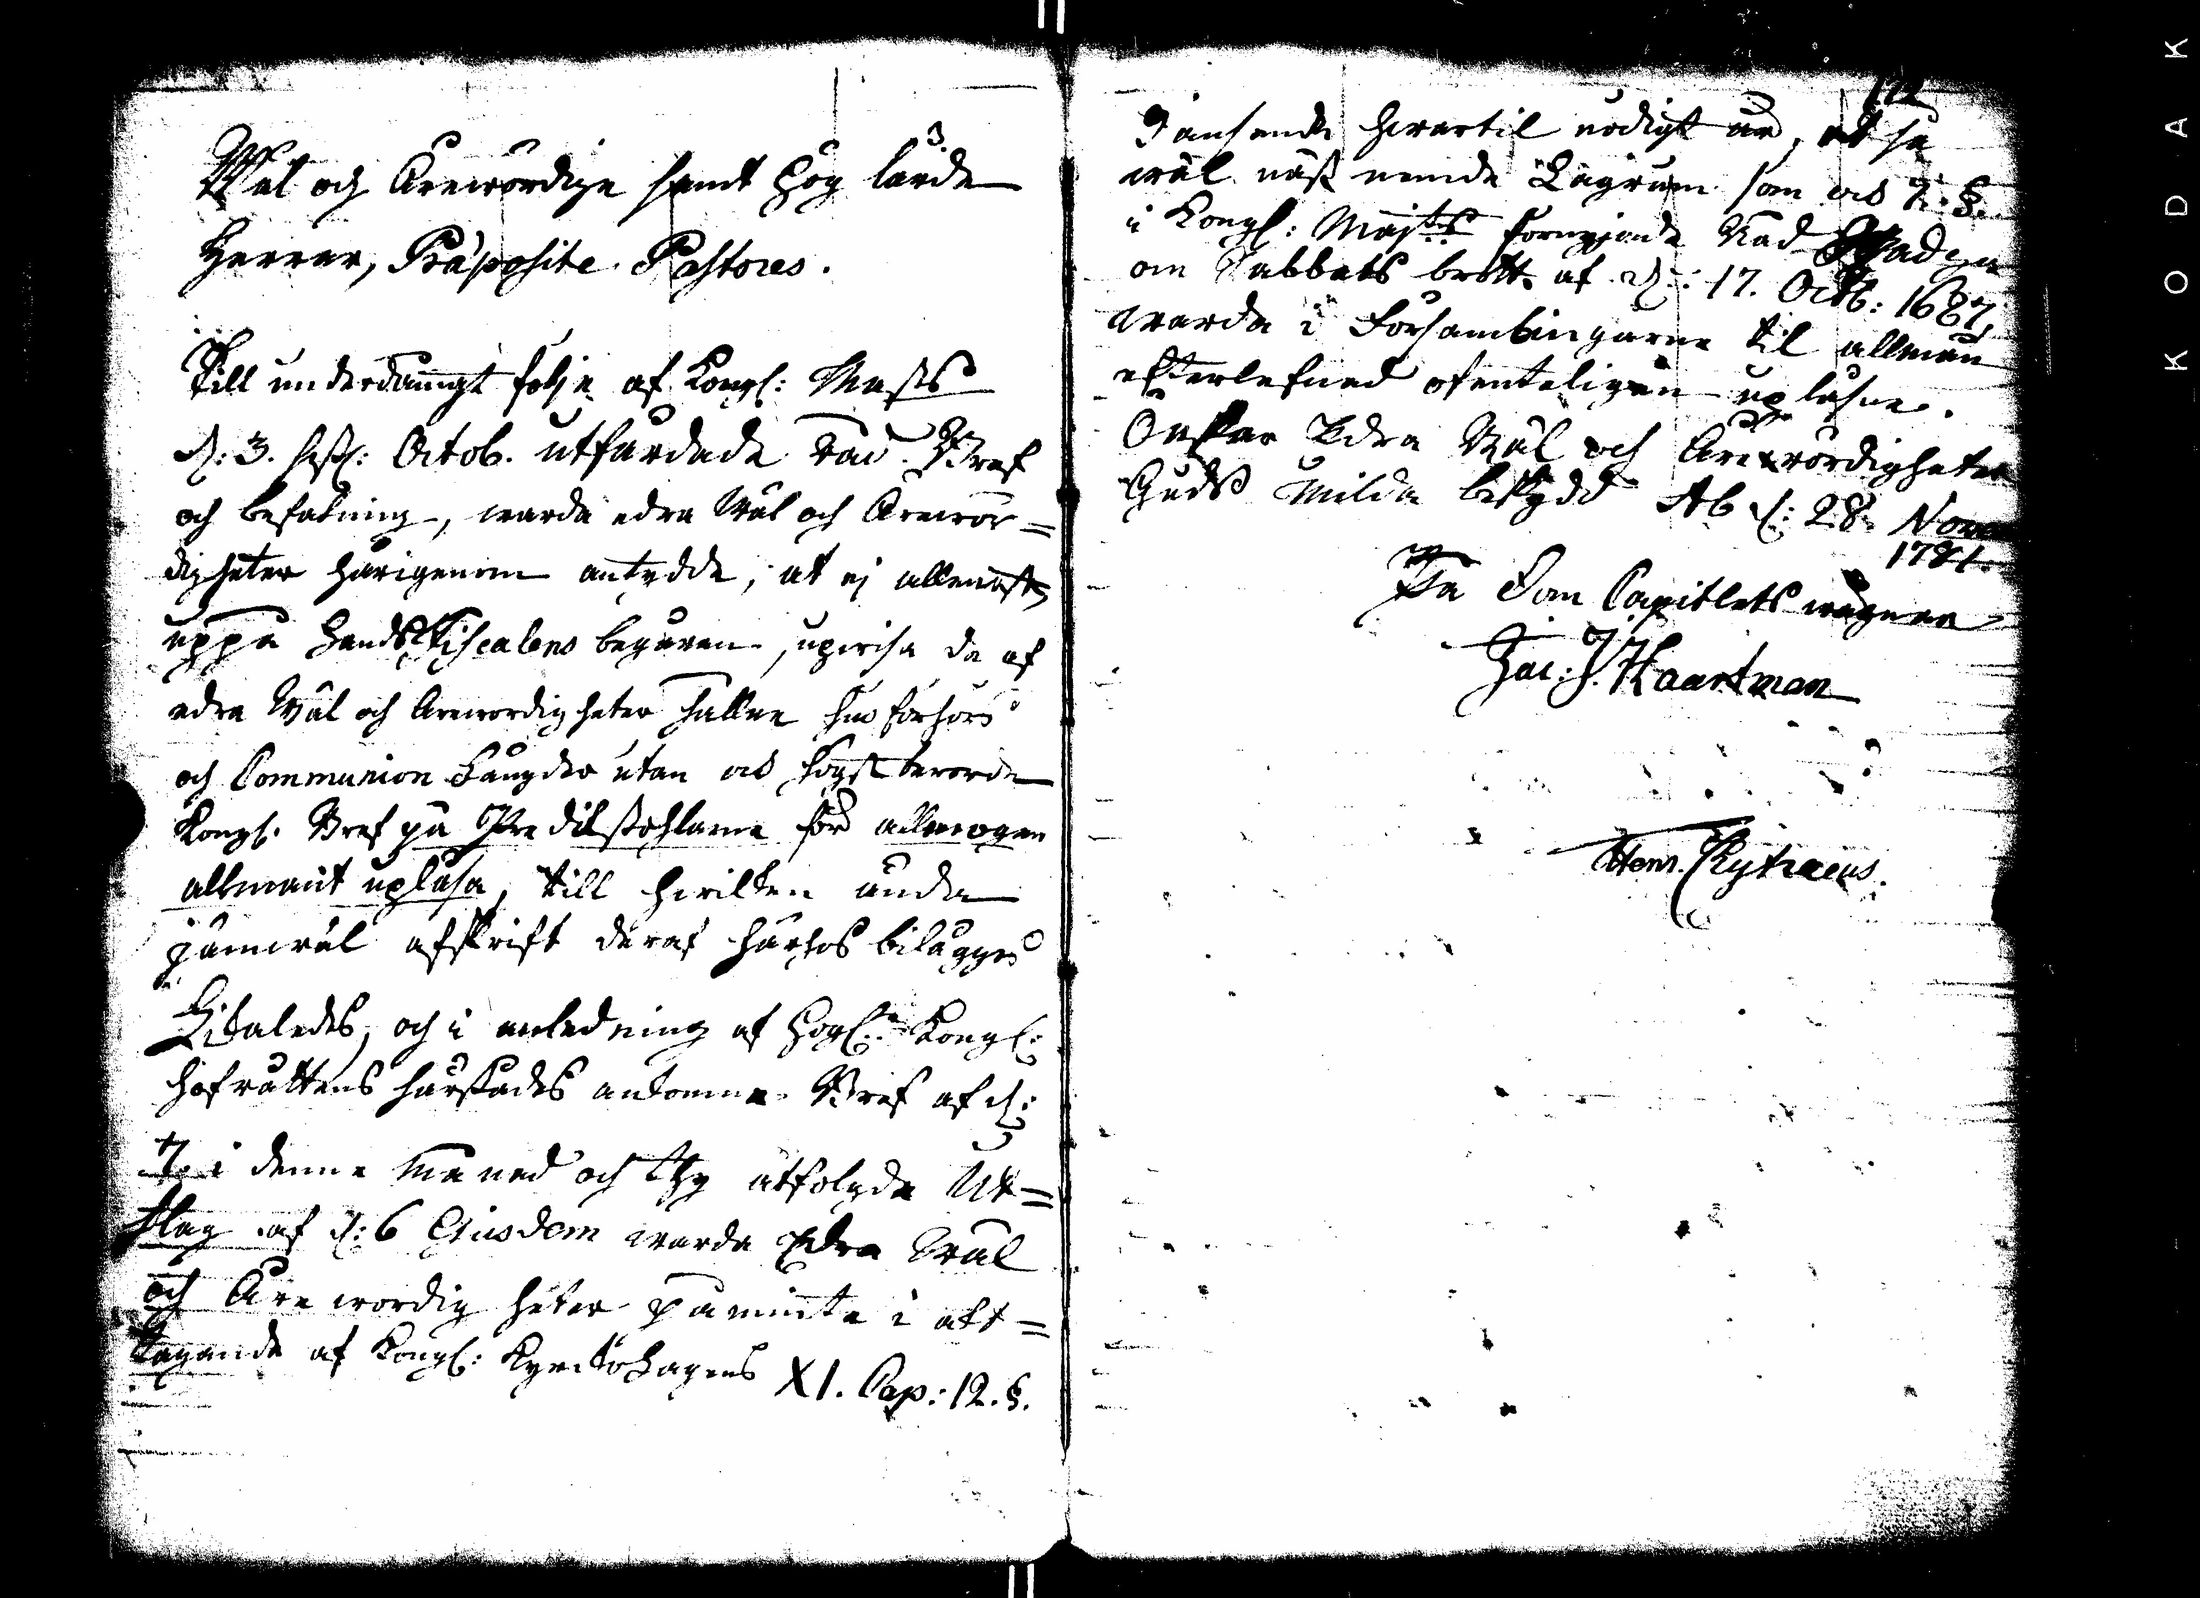 Wäl och Ärewördige samt Hög lärde
Herrar, Præposite Pastores.
Till underdånigt följe af Kongl: Maj:ts
d: 3. sistl: Octob. utfärdade Nåd. Bref
och befalning, warda edra Wäl och Ärewör=
digheter härigenom antydde, at ej allenast
uppå Lands Fiscalens begäran, upwisa de af
edra Wäl och Ärewördigheter hållne husförhörs
och Communion Längder utan ock högstberörde
Kongl. Bref på Predikstohlarne för allmogen
allmänt upläsa, till hwilken ända
jämwäl afskrift deraf härhos bilägges
Likaledes, och i anledning af Högl: Kongl:
Hofrättens härstädes ankomne Bref af d:
7. i denne Månad och thy åtföljde Ut=
slag af d: 6 Ejusdem warda Edra Wäl
och Ärewördigheter påminte i akt=
tagande af Kongl: Kyrckolagens XI. Cap: 12. §.
112
I anseende hwartil nödigt är, at så
wäl näst nemde Lagrum som ock 7. §.
i Kongl: Maj:ts förnyjande Nåd Stadga
om Sabbats brott af d: 17. Octb: 1687,
warda i Församlingarne til allmän
efterlefnad ofenteligen upläsne.
Önskar Edra Wäl och Ärewördigheter
Guds milda beskydd Åb d: 28. Nov
1781.
På Dom Capitlets wägnar
Jac: J. Haartman
Henr. Kytraeus.
K O D A K